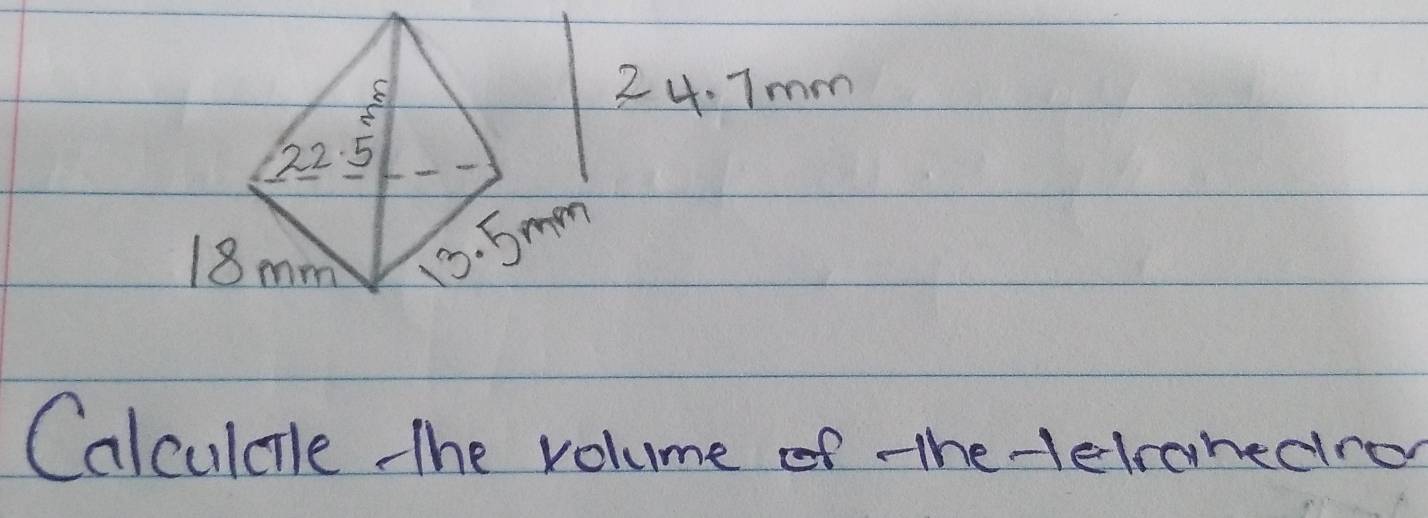 24.7mm
22.5mm
18mm
13.5mm
Calculate the volume of the tetrahedron